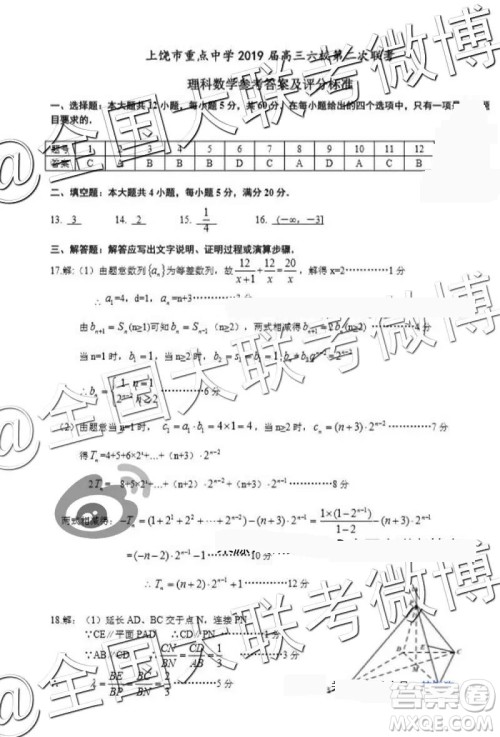 上饶市重点中学2019届高三六校第二次联考
理科数学参考答案及评分标准
一、选择题：本大题共12小题，每小题5分，共60分，在每小题给出的四个选项中，只有一项
目要求的.
题号 1 2 3 4 5 6 7 8 9 10 11 12
答案 C A B B D C A B D A C
二、填空题：本大题共4小题，每小题5分，满分20分.
13. 3 14. 2 15. 1/4 16. (-∞, -3]
三、解答题：解答应写出文字说明、证明过程或演算步骤.
17.解:（1）由题意数列{aₙ}为等差数列，故 12/(x+1)+12/x=20/x，解得x=2…………1分
∴ a₁=4，d=1，aₙ=n+3…………
由bₙ₊₁=Sₙ(n≥1)可知bₙ=Sₙ₋₁（n≥2），两式相减得bₙ₊₁=2bₙ(n≥2)…………4分
当n=1时，b₁=1，当n≥2时，b₂=s₁=b₁=1,
∴ bₙ={1 n=1
2ⁿ⁻² n≥2 …………6分
（2）由题意当n=1时， c₁=a₁·b₁=4×1=4，当n≥2时，cₙ=(n+3)·2ⁿ⁻² …………7分
得Tₙ=4+5+6×2¹+…+（n+3）·2ⁿ⁻²
2Tₙ= 8+5×2¹+…+（n+2）·2ⁿ⁻²+（n+3）·2ⁿ⁻¹ …………8分
两式相减得: -Tₙ=(1+2¹+2²+…+2ⁿ⁻²)-(n+3)·2ⁿ⁻¹=1×(1-2ⁿ⁻¹)/(1-2)-(n+3)·2ⁿ⁻¹
=(-n-2)·2ⁿ⁻¹-1 …………10分
∴ Tₙ=(n+2)·2ⁿ⁻¹+1 …………12分
18.解:（1）延长AD、BC交于点N，连接PN
∵CE∥平面PAD ∴CE∥PN
∵AB∥CD ∴CN/BN=CD/AB=1/3 …………3分
∴ BE/BP=BC/BN=2/3 …………5分
@全国大联考微博
@全国大联考微博
@全国大联考微博
答案圈